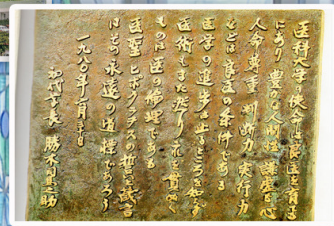 医科大学の使命は良医を育るに
にあり 豊かな人間性 謙虚な心
人命尊重 判断力 実行力
などは良医の条件である
医学の進歩は止るところを知らず
医術もまた然り それを貫く
ものは医の倫理である
医聖ヒポクラテスの哲と箴言
はその永遠の道標であろう
一九八八年一月三十日
初代学長 勝木司馬之助